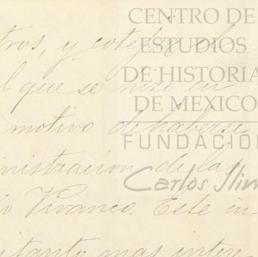 CENTRO DE
ESTUDIOS
DE HISTORIA
DE MEXICO
FUNDACIÓN
Carlos Slim
tros, y
l que se hizo en
motivo de haberse
ministracion de la
io Vivanco. Este in-
tanto mas intere-